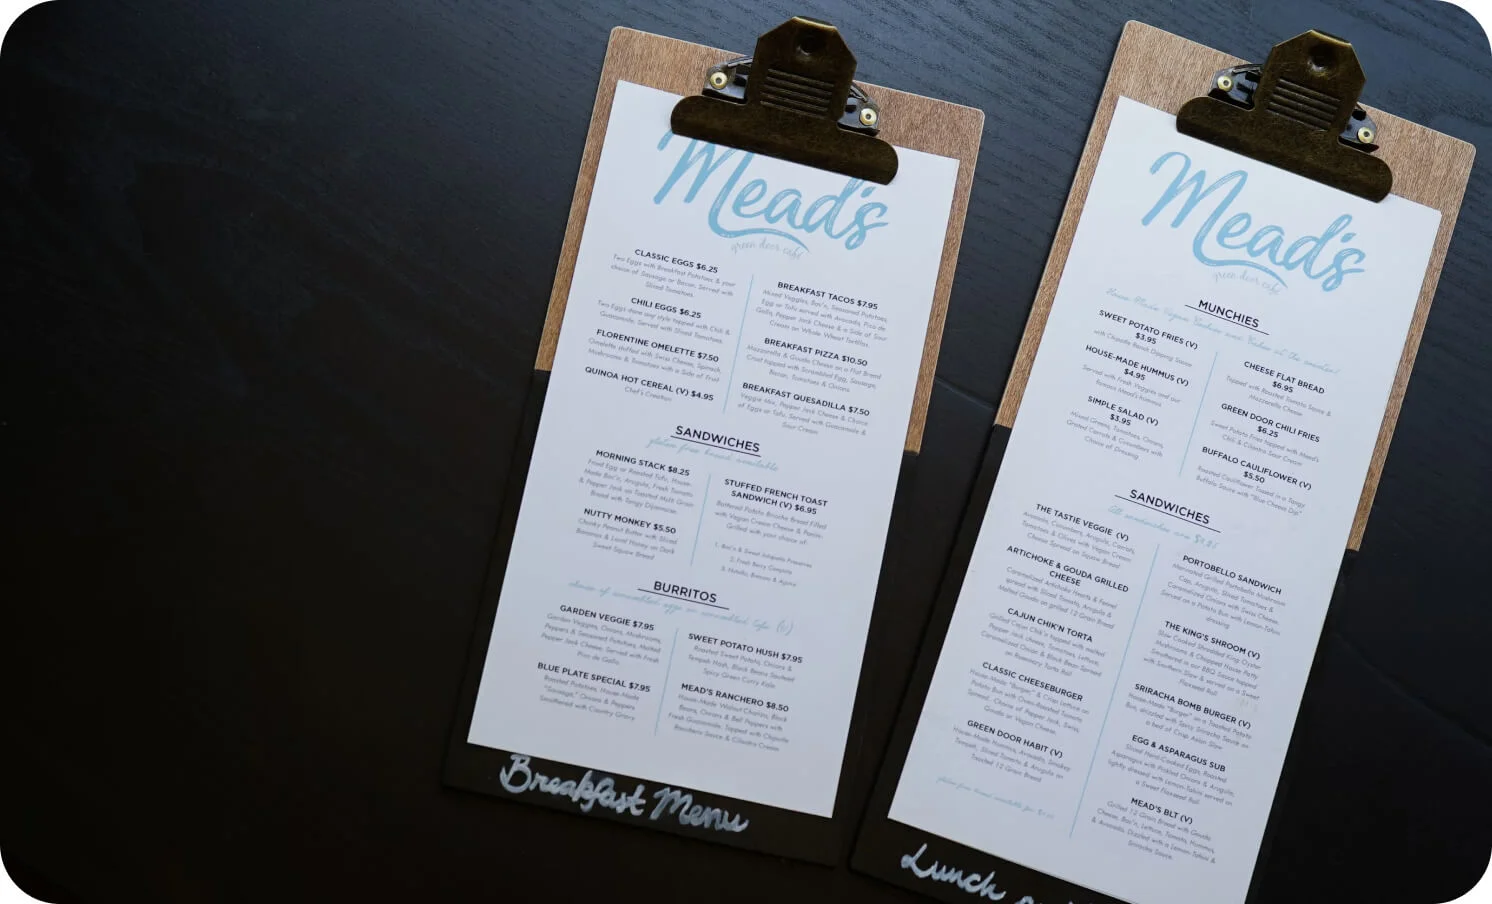 Mead's
green door cafe
CLASSIC EGGS $6.25
Two Eggs with Breakfast Potatoes & your
choice of Sausage or Bacon, Served with
Sliced Tomatoes.
CHILI EGGS $6.25
Two Eggs done any style topped with Chili &
Guacamole, Served with Sliced Tomatoes.
FLORENTINE OMELETTE $7.50
Omelette stuffed with Swiss Cheese, Spinach,
Mushrooms & Tomatoes with a Side of Fruit
QUINOA HOT CEREAL (V) $4.95
Chef's Creation
BREAKFAST TACOS $7.95
Mixed Veggies, Bac'n, Seasoned Potatoes,
Egg or Tofu served with Avocado, Pico de
Gallo, Pepper Jack Cheese & a Side of Sour
Cream on Whole Wheat Tortillas.
BREAKFAST PIZZA $10.50
Mozzarella & Gouda Cheese on a Flat Bread
Crust topped with Scrambled Egg, Sausage,
Bacon, Tomatoes & Onions
BREAKFAST QUESADILLA $7.50
Veggie Mix, Pepper Jack Cheese & Choice
of Eggs or Tofu, Served with Guacamole &
Sour Cream
SANDWICHES
gluten free bread available
MORNING STACK $8.25
Fried Egg or Roasted Tofu, House-
Made Bac'n, Arugula, Fresh Tomato
& Pepper Jack on Toasted Multi Grain
Bread with Tangy Dijonnaise.
NUTTY MONKEY $5.50
Chunky Peanut Butter with Sliced
Bananas & Local Honey on Dark
Sweet Squaw Bread
STUFFED FRENCH TOAST
SANDWICH (V) $6.95
Battered Potato Brioche Bread Filled
with Vegan Cream Cheese & Panini-
Grilled with your choice of:
1. Bac'n & Sweet Jalapeño Preserves
2. Fresh Berry Compote
3. Nutella, Banana & Agave
BURRITOS
choice of scrambled eggs or scrambled tofu (V)
GARDEN VEGGIE $7.95
Garden Veggies, Onions, Mushrooms,
Peppers & Seasoned Potatoes, Melted
Pepper Jack Cheese, Served with Fresh
Pico de Gallo.
BLUE PLATE SPECIAL $7.95
Roasted Potatoes, House-Made
"Sausage," Onions & Peppers
Smothered with Country Gravy
SWEET POTATO HUSH $7.95
Roasted Sweet Potato, Onions &
Tempeh Hash, Black Beans Sautéed
Spicy Green Curry Kale
MEAD'S RANCHERO $8.50
House-Made Walnut Chorizo, Black
Beans, Onions & Bell Peppers with
Fresh Guacamole Topped with Chipotle
Ranchero Sauce & Cilantro Crema
Breakfast Menu
Mead's
green door cafe
MUNCHIES
House Made Vegan Cookies and Cakes at the counter!
SWEET POTATO FRIES (V)
$3.95
with Chipotle Ranch Dipping Sauce
HOUSE-MADE HUMMUS (V)
$4.95
Served with Fresh Veggies and our
famous Mead's hummus
SIMPLE SALAD (V)
$3.95
Mixed Greens, Tomatoes, Onions,
Grated Carrots & Cucumbers with
Choice of Dressing
CHEESE FLAT BREAD
$6.95
Topped with Roasted Tomato Sauce &
Mozzarella Cheese
GREEN DOOR CHILI FRIES
$6.25
Sweet Potato Fries topped with Mead's
Chili & Cilantro Sour Cream
BUFFALO CAULIFLOWER (V)
$5.50
Roasted Cauliflower Tossed in a Tangy
Buffalo Sauce with "Blue Cheese Dip"
SANDWICHES
All sandwiches are $9.25
THE TASTIE VEGGIE (V)
Avocado, Cucumbers, Arugula, Carrots,
Tomatoes & Olives with Vegan Cream
Cheese Spread on Squaw Bread
ARTICHOKE & GOUDA GRILLED
CHEESE
Caramelized Artichoke Hearts & Fennel
spread with Sliced Tomato, Arugula &
Melted Gouda on grilled 12 Grain Bread
CAJUN CHIK'N TORTA
Grilled Cajun Chik'n topped with melted
Pepper Jack cheese, Tomatoes, Lettuce,
Caramelized Onion & Black Bean Spread
on Rosemary Torta Roll
CLASSIC CHEESEBURGER
House-Made "Burger" & Crisp Lettuce on
Potato Bun with Oven-Roasted Tomato
Spread, Choice of Pepper Jack, Swiss,
Gouda or Vegan Cheese.
GREEN DOOR HABIT (V)
House-Made Hummus, Avocado, Smokey
Tempeh, Sliced Tomato & Arugula on
Toasted 12 Grain Bread
PORTOBELLO SANDWICH
Marinated Grilled Portobello Mushroom
Cap, Arugula, Sliced Tomatoes &
Caramelized Onions with Swiss Cheese,
Served on a Potato Bun with Lemon-Tahini
dressing
THE KING'S SHROOM (V)
Slow Cooked Shredded King Oyster
Mushrooms & Chopped House Patty
Smothered in our BBQ Sauce topped
with Southern Slaw & served on a Sweet
Flaxseed Roll
SRIRACHA BOMB BURGER (V)
House-Made "Burger" on a Toasted Potato
Bun, drizzled with Spicy Sriracha Sauce on
a bed of Crisp Asian Slaw
EGG & ASPARAGUS SUB
Sliced Hard-Cooked Eggs, Roasted
Asparagus with Pickled Onions & Arugula,
lightly dressed with Lemon-Tahini served on
a Sweet Flaxseed Roll
MEAD'S BLT (V)
Grilled 12 Grain Bread with Gouda
Cheese, Bac'n, Lettuce, Tomato, Hummus,
& Avocado, Drizzled with a Lemon-Tahini &
Sriracha Sauce.
gluten free bread available for
Lunch